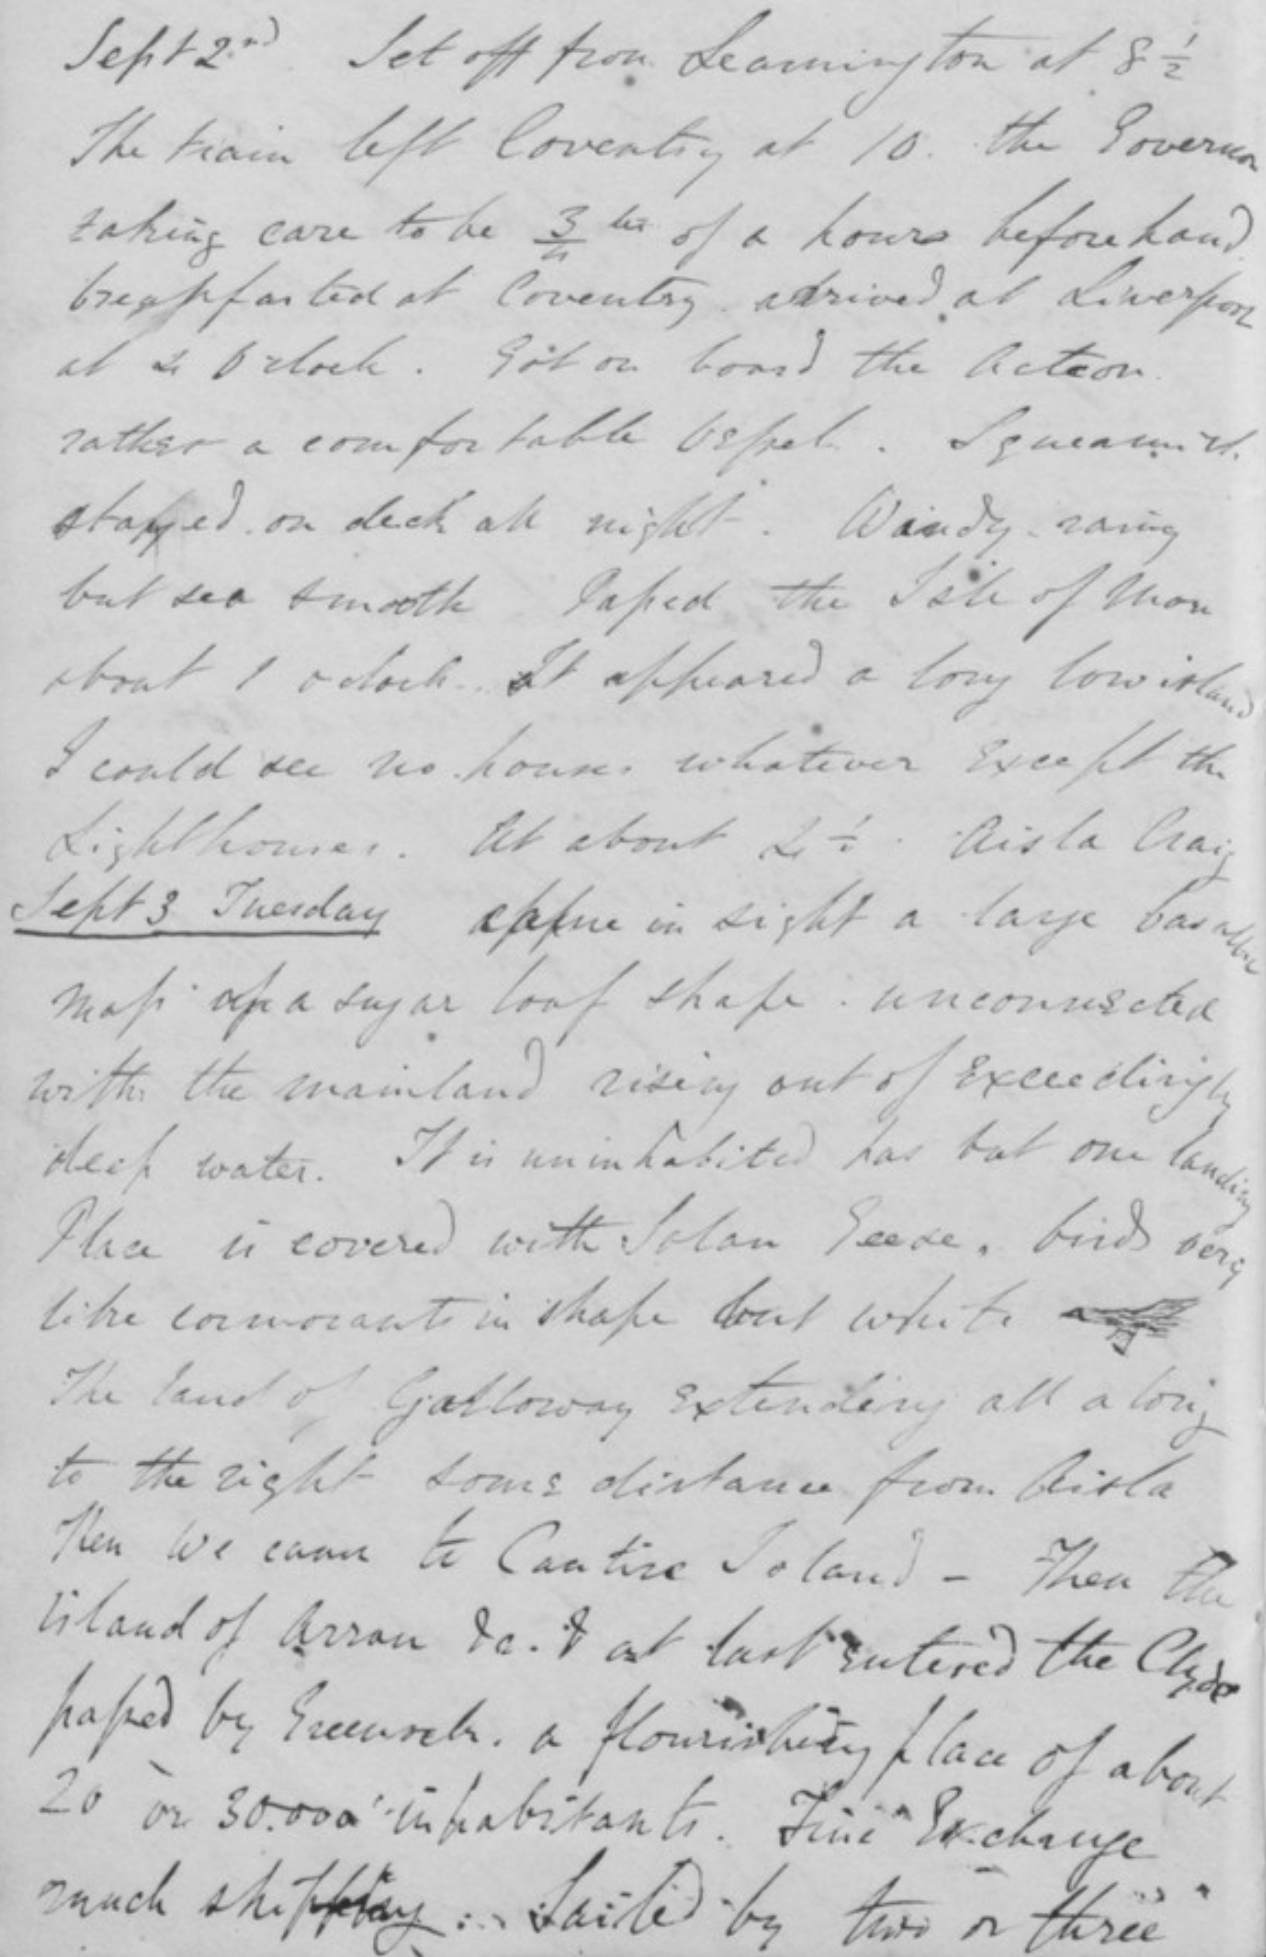 Sept 2nd Set off from Leamington at 8 ½
The train left Coventry at 10. the Governor
taking care to be ¾ ths of a hours beforehand
breakfasted at Coventry. arrived at Liverpool
at 2 O'clock. Got on board the Acteon
rather a comfortable Vessel. Squeamish.
stayed on deck all night. Windy
but sea smooth Passed the Isle of Man
about 1 o clock. It appeared a long low island
I could see no houses whatever Except the
Lighthouses. At about 2 ½. Aisla Craig
Sept 3 Tuesday came in sight a large basaltic
Mass of a sugar loaf shape. unconnected
with the mainland rising out of Exceedingly
deep water. It is uninhabited has but one landing
Place is covered with Solan Geese. birds very
like cormorants in shape but white
The land of Galloway Extending all along
to the right some distance from Aisla
Then We came to Cantire Island - Then the
island of Arran &c. & at last entered the Clyde
passed by Greenock. a flourishing place of about
20 or 30.000 inhabitants. Fine Exchange
much shipping. Sailed by two or three